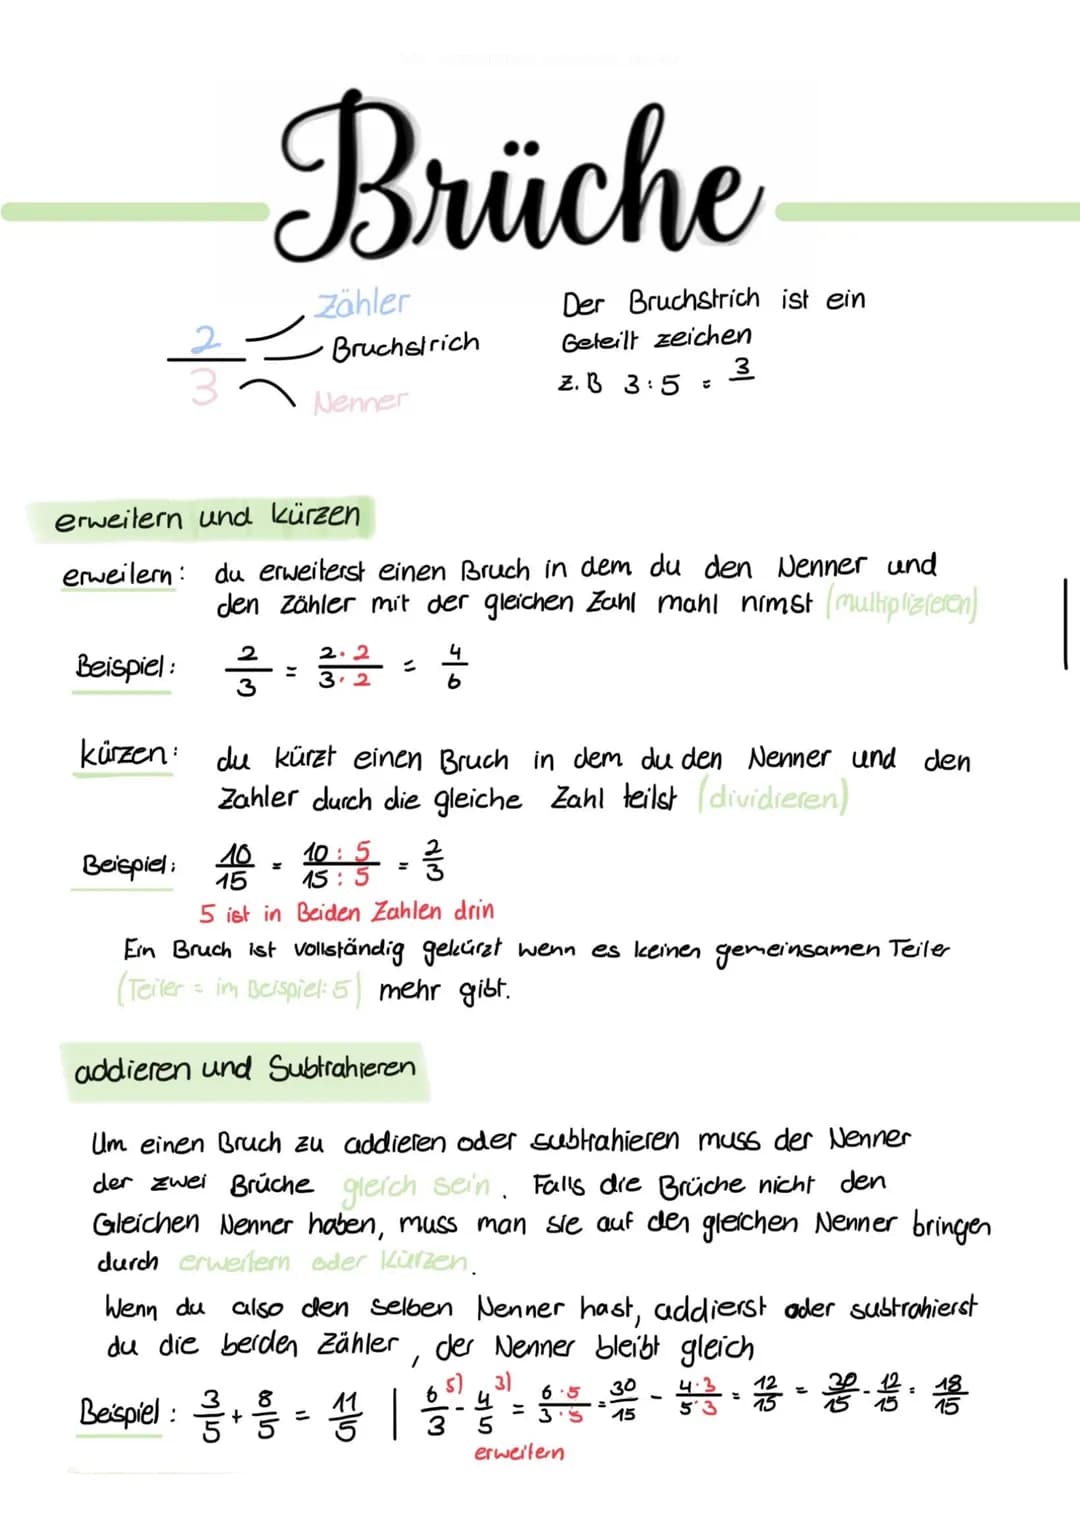 Brüche
Zähler
2/3
Bruchstrich
Nenner
Der Bruchstrich ist ein
Geteilt zeichen
z.B 3:5 = 3
erweitern und kürzen
erweitern: du erweiterst einen Bruch in dem du den Nenner und
den Zähler mit der gleichen Zahl mahl nimst (multiplizieren)
Beispiel: 2/3 = 2·2/3·2 = 4/6
kürzen: du kürzt einen Bruch in dem du den Nenner und den
Zahler durch die gleiche Zahl teilst (dividieren)
Beispiel: 10/15 = 10:5/15:5 = 2/3
5 ist in Beiden Zahlen drin
Ein Bruch ist vollständig gekürzt wenn es keinen gemeinsamen Teiler
(Teiler = im Beispiel: 5) mehr gibt.
addieren und Subtrahieren
Um einen Bruch zu addieren oder subtrahieren muss der Nenner
der zwei Brüche gleich sein. Falls die Brüche nicht den
Gleichen Nenner haben, muss man sie auf den gleichen Nenner bringen
durch erweitern oder Kürzen.
Wenn du also den selben Nenner hast, addierst oder subtrahierst
du die beiden Zähler, der Nenner bleibt gleich
Beispiel: 3/5 + 8/5 = 11/5 | 6/3 5) - 4/5 3) = 6·5/3·5 = 30/15 - 4·3/5·3 = 12/15 = 30/15 - 12/15 = 18/15
erweitern